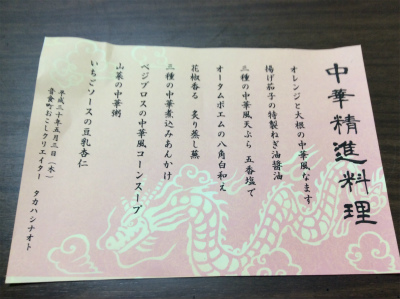 中華精進料理
オレンジと大根の中華風なます
揚げ茄子の特製ねぎ油醤油
三種の中華風天ぷら 五香塩で
オータムポエムの八角白和え
花椒香る 炙り蒸し蕪
三種の中華煮込みあんかけ
ベジブロスの中華風コーンスープ
山菜の中華粥
いちごソースの豆乳杏仁
平成三十年五月三日(木)
音食町おこしクリエイター タカハシナオト